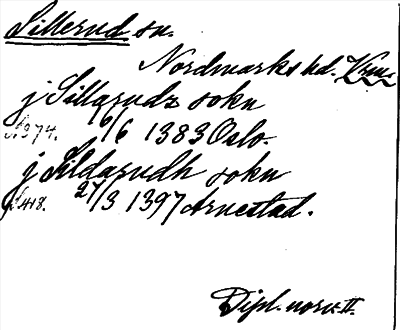 Sillerud sn.
Nordmarks hd. Vrm.
j Sillarudz sokn
S. 374. 6/6 1383 Oslo.
j Sildarudh sokn
S. 418. 27/3 1397 Arnestad.
Dipl. norv. II.